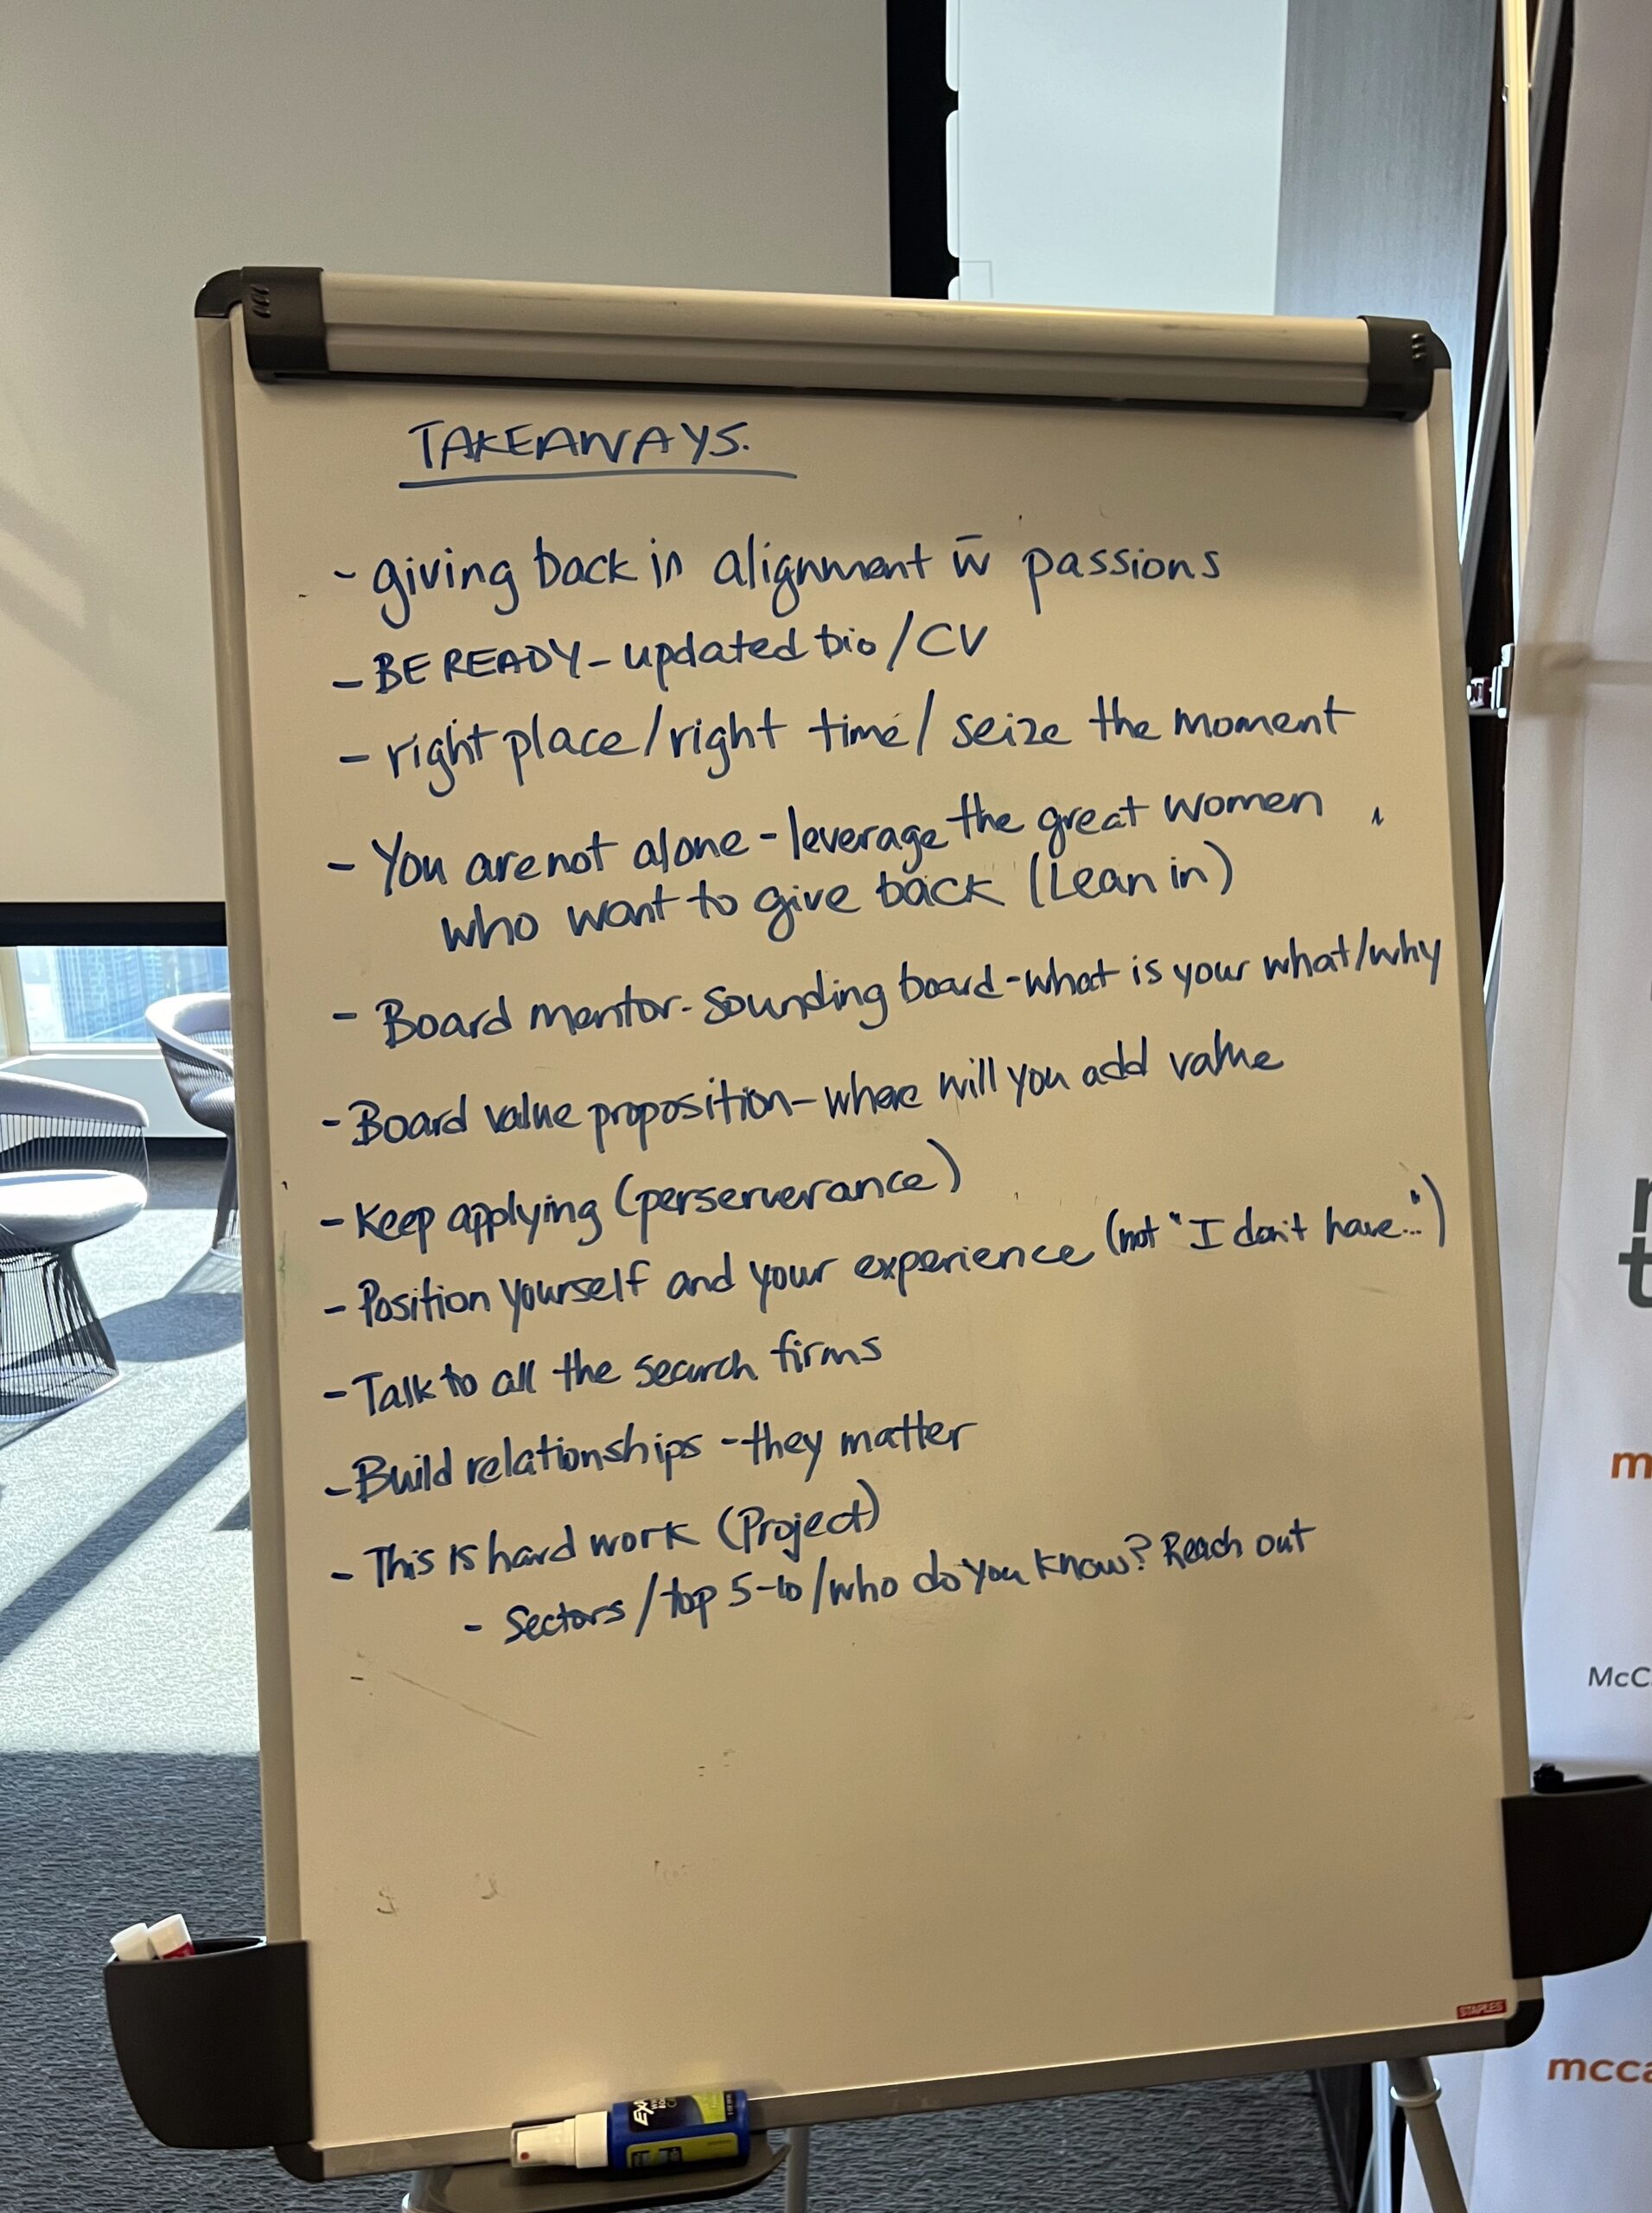 TAKEAWAYS.
- giving back in alignment w̄ passions
- BE READY - updated bio/CV
- right place/right time/ seize the moment
- You are not alone - leverage the great women
who want to give back (Lean in)
- Board mentor - Sounding board - what is your what/why
- Board value proposition - where will you add value
- Keep applying (perserverance)
- Position yourself and your experience (not "I don't have...")
- Talk to all the search firms
- Build relationships - they matter
- This is hard work (Project)
- Sectors/top 5-10/who do you know? Reach out
-
m
McC
STAPLES
mcca
EX